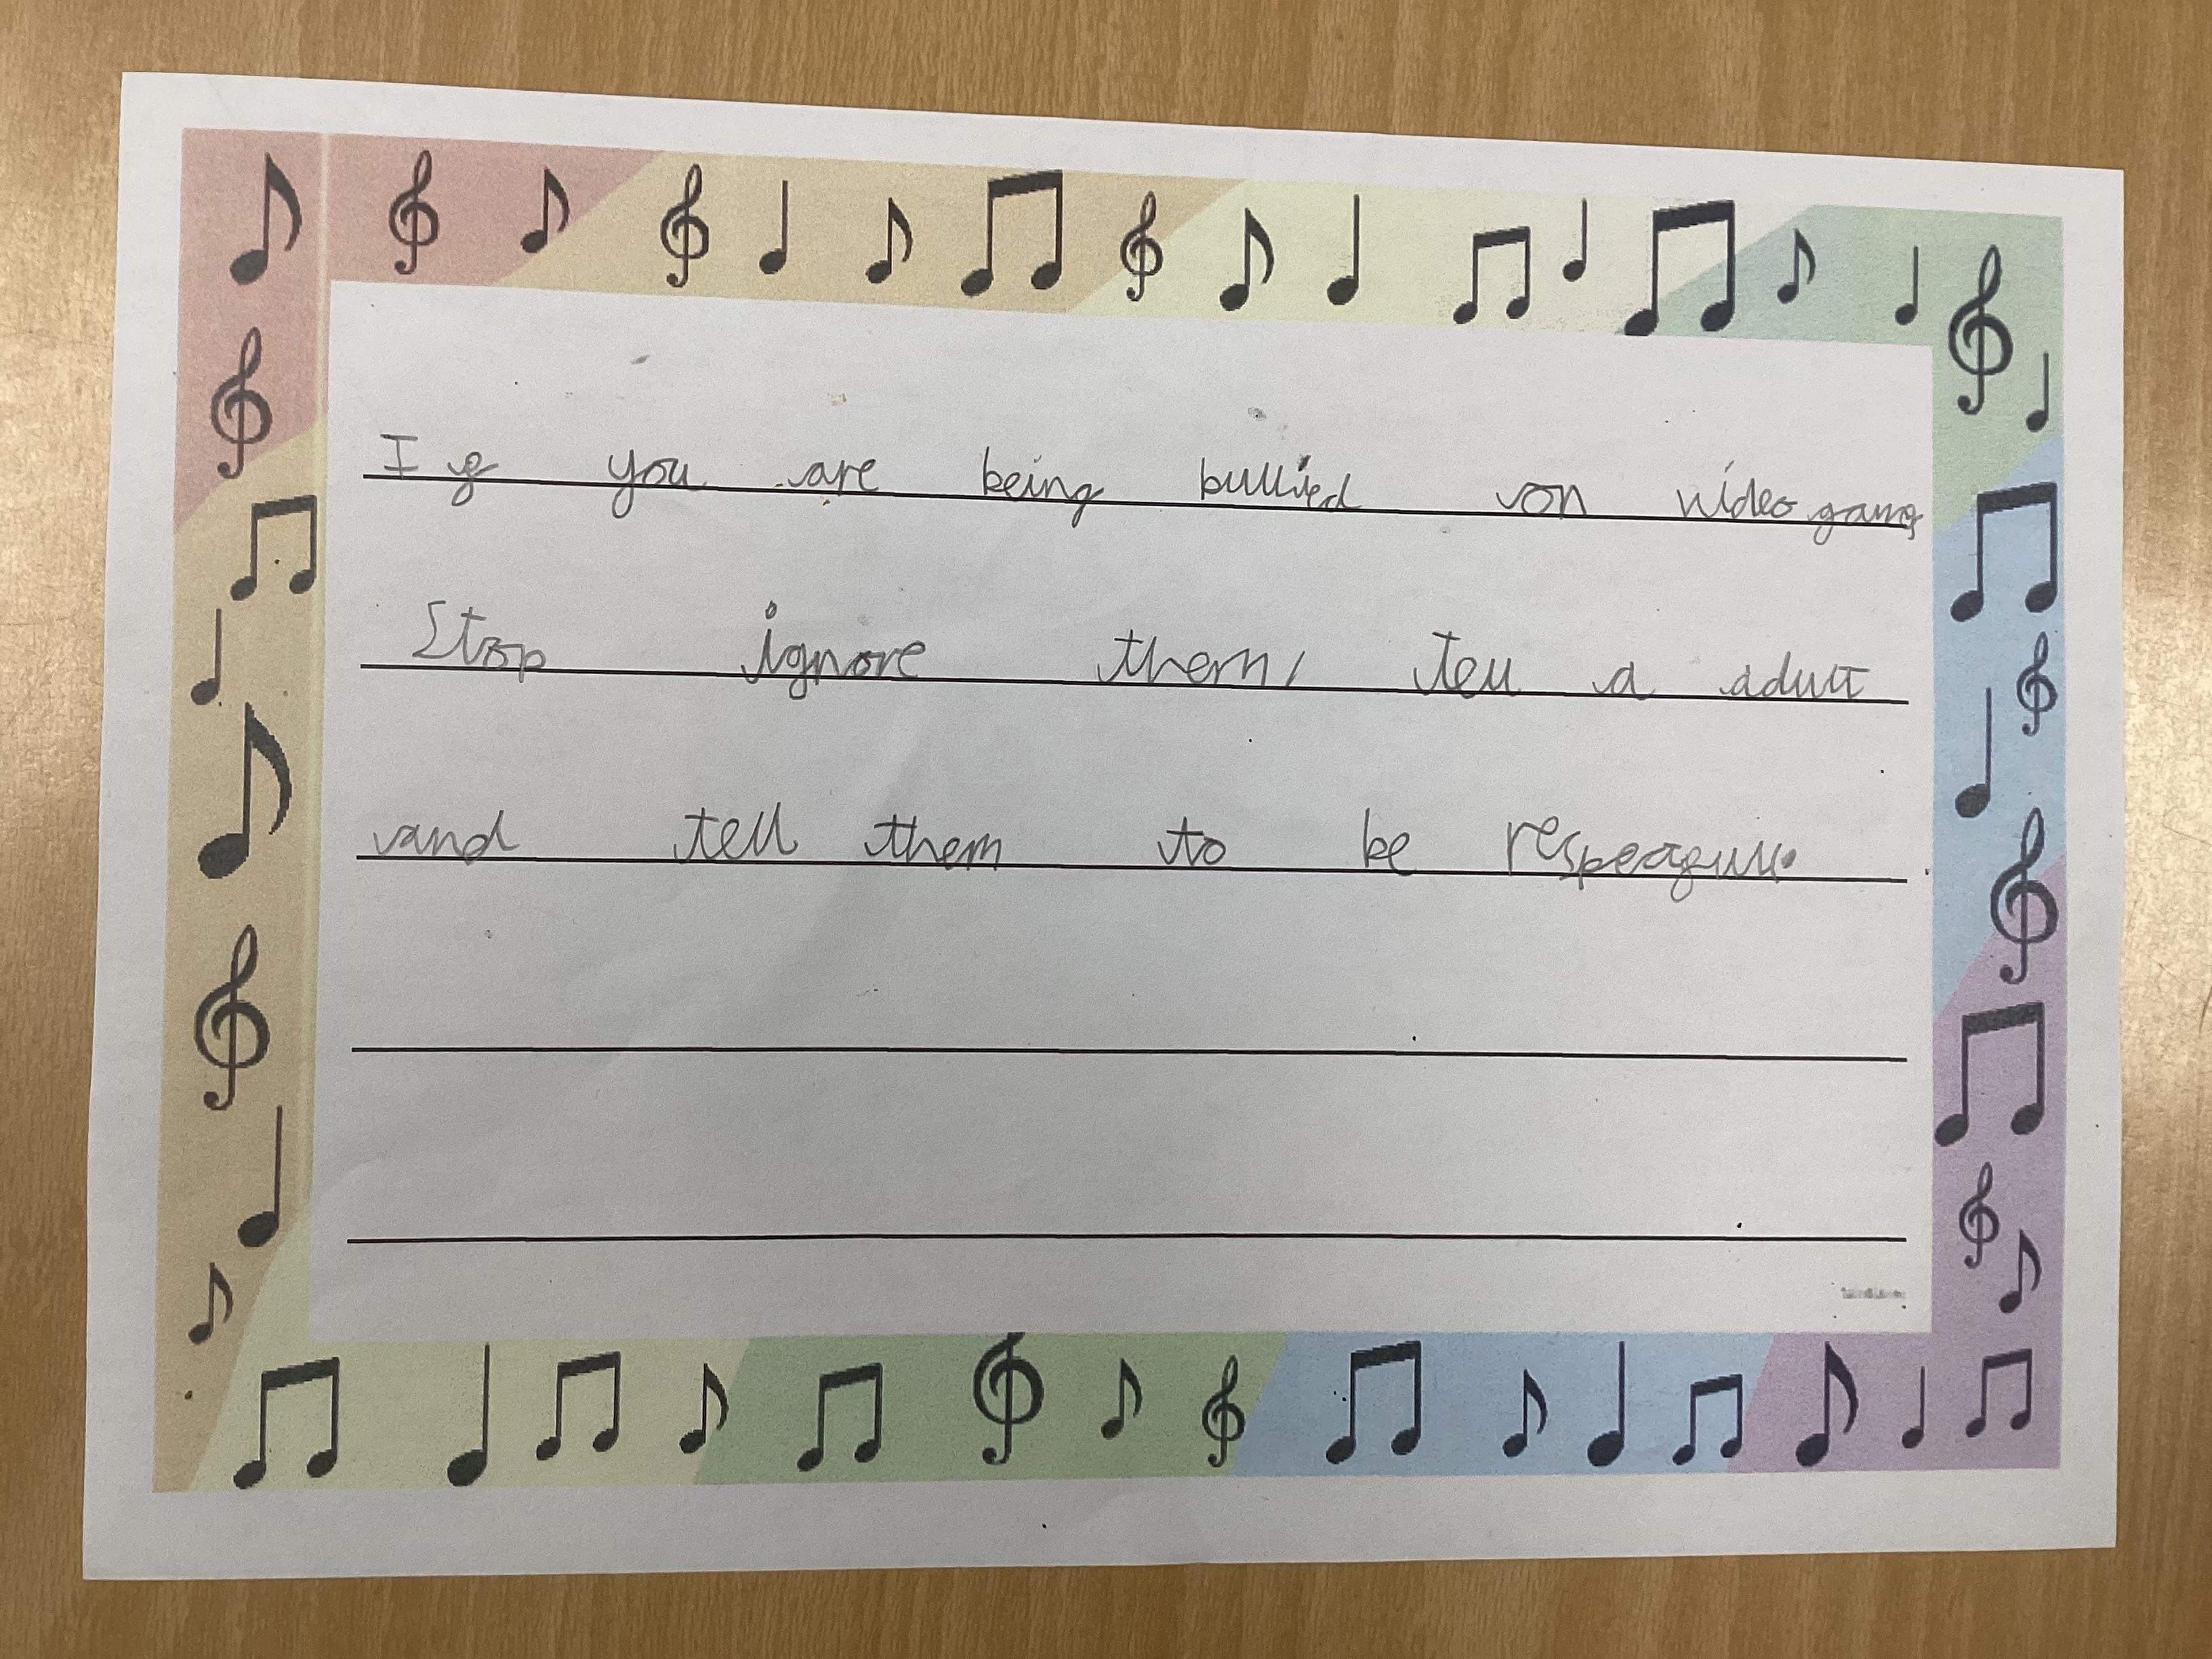 If you are being bullied on video games
Stop ignore them, tell a adult
and tell them to be respecful.